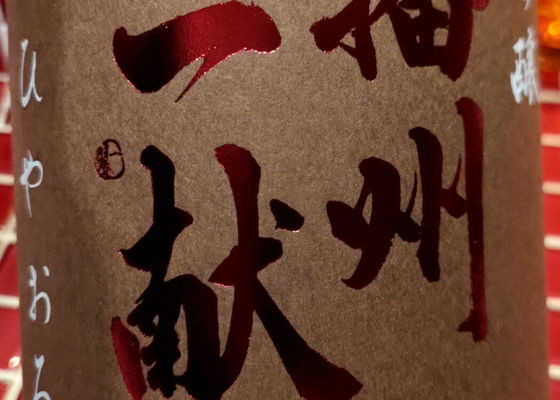 醸
播州
一献
ひやおろ